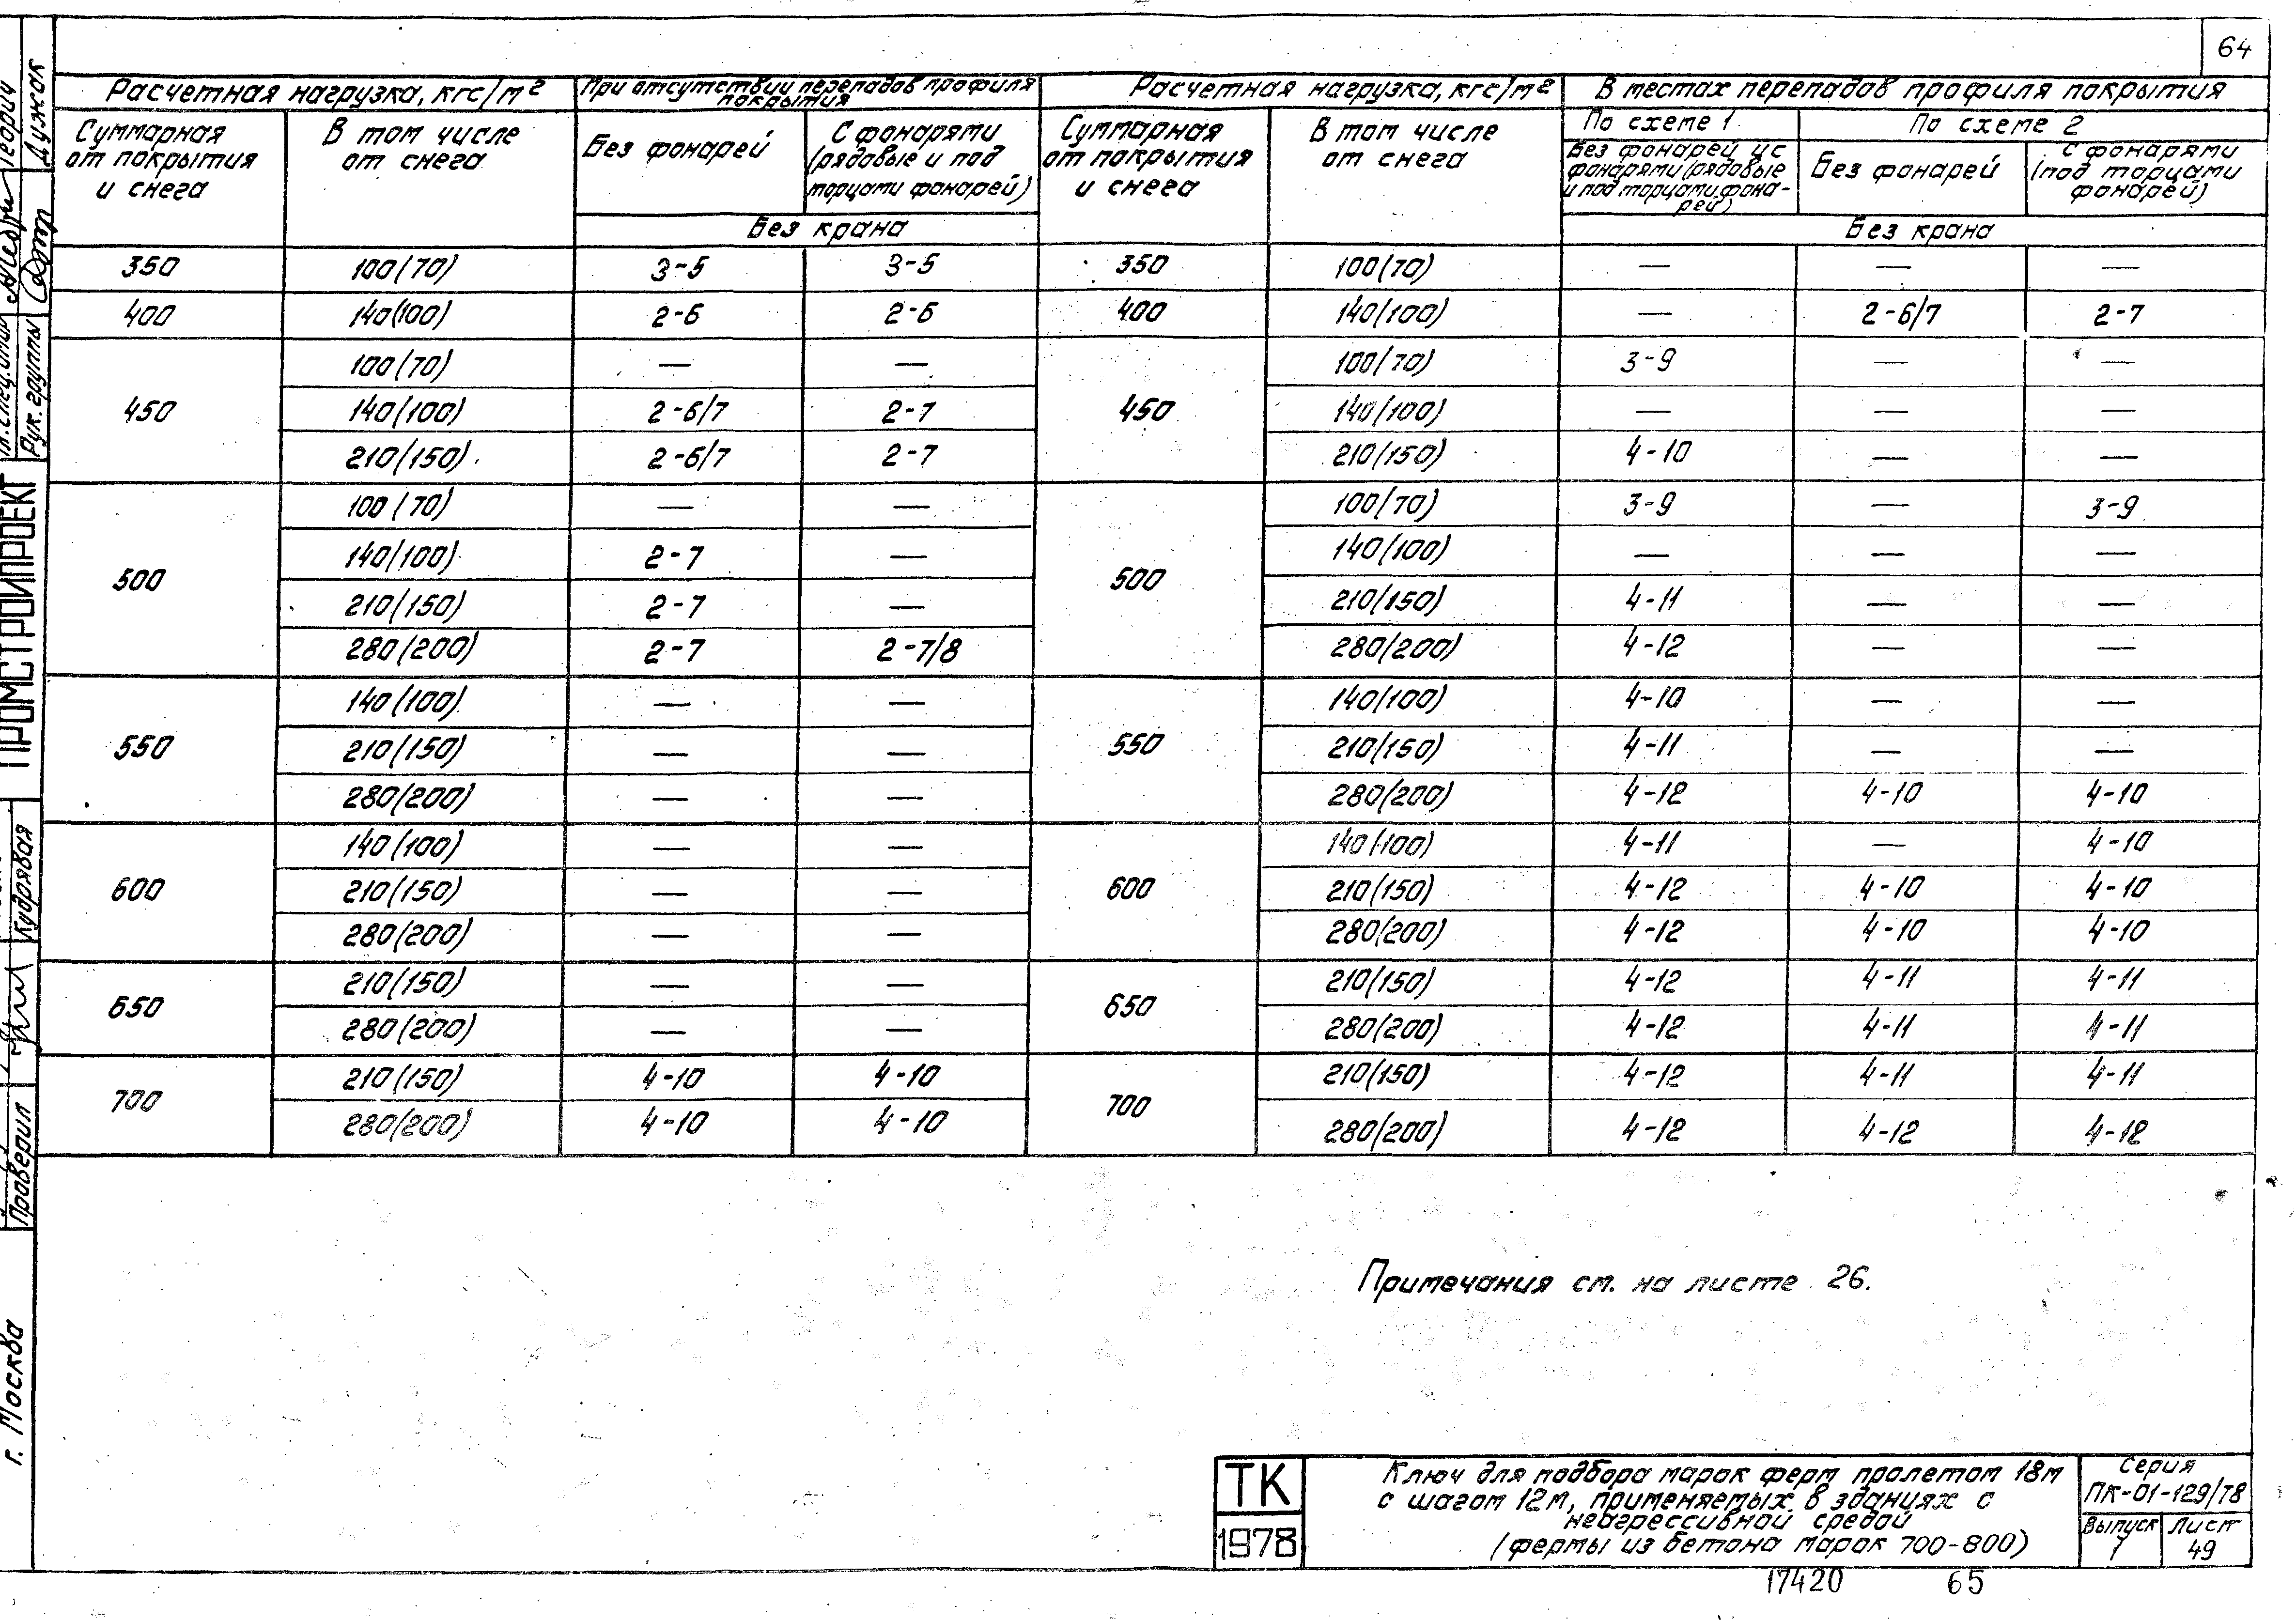 64
Расчетная нагрузка, кгс/м² При отсутствии перепадов профиля покрытия Расчетная нагрузка, кгс/м² В местах перепадов профиля покрытия
Суммарная от покрытия и снега В том числе от снега Без фонарей С фонарями (рядовые и под торцами фонарей) Суммарная от покрытия и снега В том числе от снега По схеме 1 По схеме 2
Без фонарей и с фонарями (рядовые и под торцами фонарей) Без фонарей С фонарями (под торцами фонарей)
Без крана Без крана
350 100(70) 3-5 3-5 350 100(70) — — —
400 140(100) 2-6 2-6 400 140(100) — 2-6/7 2-7
450 100(70) — — 450 100(70) 3-9 — —
140(100) 2-6/7 2-7 140(100) — — —
210(150) 2-6/7 2-7 210(150) 4-10 — —
500 100(70) — — 500 100(70) 3-9 — 3-9
140(100) 2-7 — 140(100) — — —
210(150) 2-7 — 210(150) 4-11 — —
280(200) 2-7 2-7/8 280(200) 4-12 — —
550 140(100) — — 550 140(100) 4-10 — —
210(150) — — 210(150) 4-11 — —
280(200) — — 280(200) 4-12 4-10 4-10
600 140(100) — — 600 140(100) 4-11 — 4-10
210(150) — — 210(150) 4-12 4-10 4-10
280(200) — — 280(200) 4-12 4-10 4-10
650 210(150) — — 650 210(150) 4-12 4-11 4-11
280(200) — — 280(200) 4-12 4-11 4-11
700 210(150) 4-10 4-10 700 210(150) 4-12 4-11 4-11
280(200) 4-10 4-10 280(200) 4-12 4-12 4-12
Примечания см. на листе 26.
ТК
1978
Ключ для подбора марок ферм пролетом 18м
с шагом 12м, применяемых в зданиях с
неагрессивной средой
(фермы из бетона марок 700-800)
Серия
ПК-01-129/78
Выпуск 1
Лист 49
17420 65
Дужак
Рук. группы
ПРОМСТРОЙПРОЕКТ
Кудрявая
Проверил
г. Москва